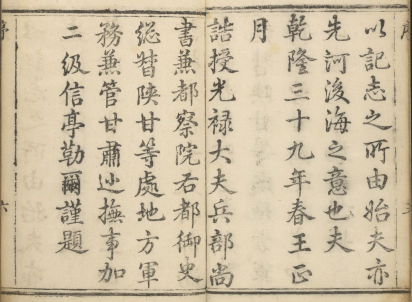 以記志之所由始夫亦
先河後海之意也夫
乾隆三十九年春王正
月
誥授光禄大夫兵部尚
書兼都察院右都御史
総督陕甘等處地方軍
務兼管甘肅廵撫事加
二級信亭勒爾謹題
序
六